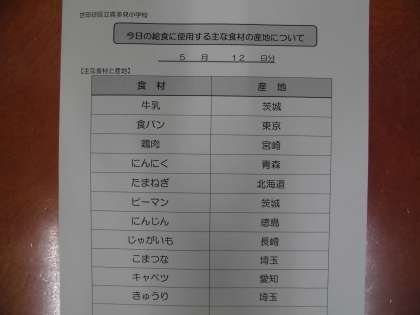 世田谷区立喜多見小学校
今日の給食に使用する主な食材の産地について
5 月 12 日分
【主な食材と産地】
食 材 産 地
牛乳 茨城
食パン 東京
鶏肉 宮崎
にんにく 青森
たまねぎ 北海道
ピーマン 茨城
にんじん 徳島
じゃがいも 長崎
こまつな 埼玉
キャベツ 愛知
きゅうり 埼玉